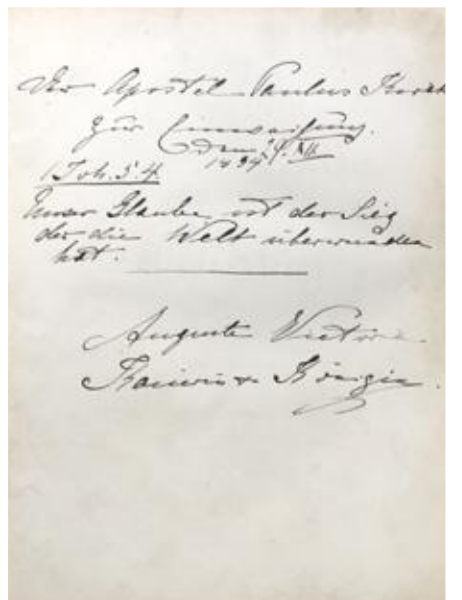 Der Apostel Paulus Kirche
zur Einweihung.
den XII
1894
1 Joh. 5. 4
Unser Glaube ist der Sieg
der die Welt überwunden
hat.
Auguste Victoria.
Kaiserin & Königin.